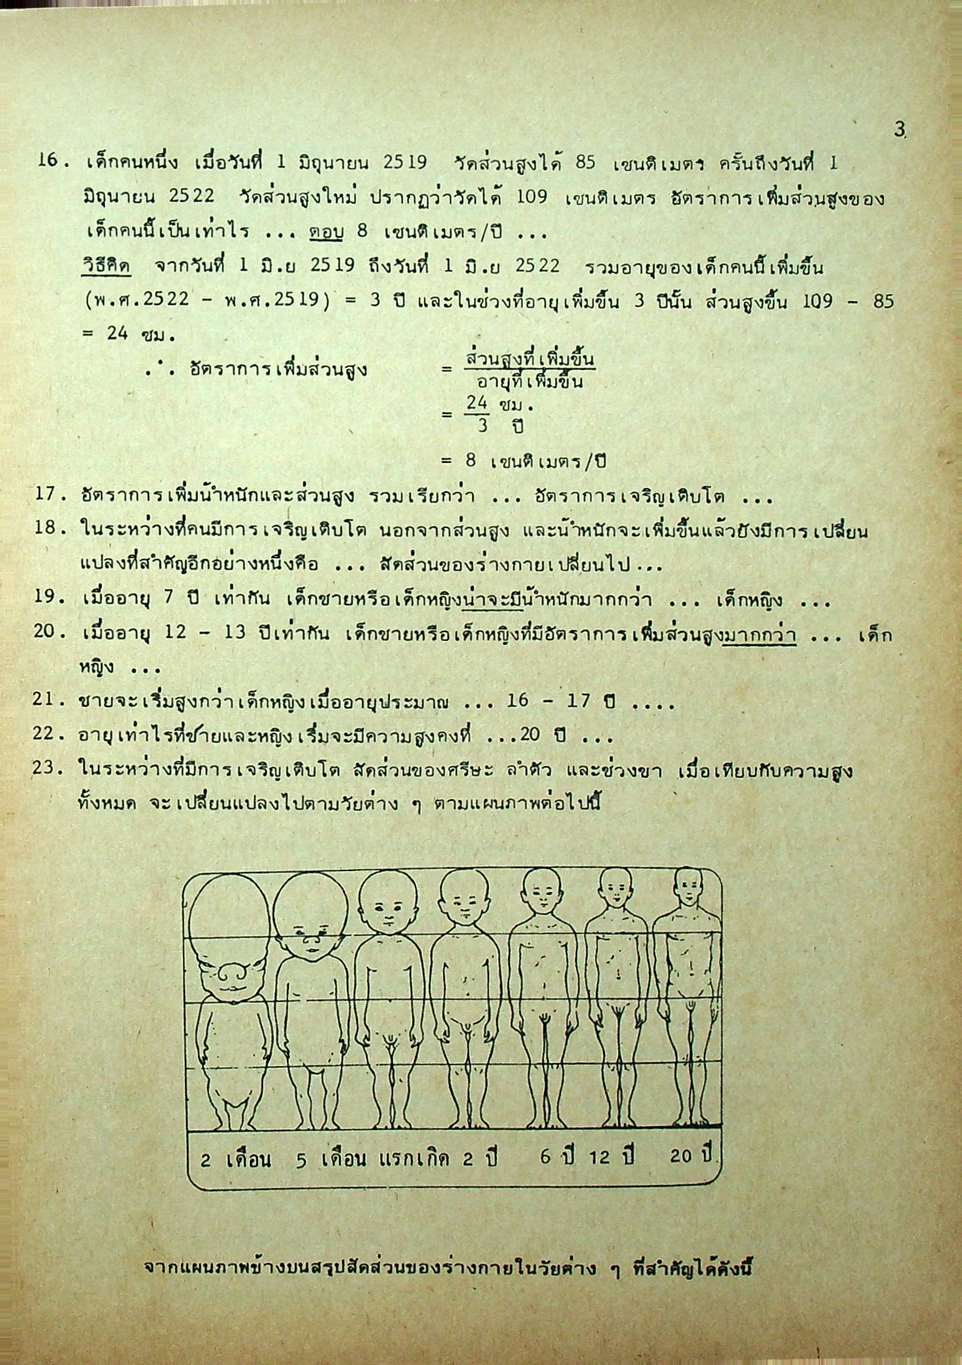 3
16. เด็กคนหนึ่ง เมื่อวันที่ 1 มิถุนายน 2519 วัดส่วนสูงได้ 85 เซนติเมตร ครั้นถึงวันที่ 1
มิถุนายน 2522 วัดส่วนสูงใหม่ ปรากฏว่าวัดได้ 109 เซนติเมตร อัตราการเพิ่มส่วนสูงของ
เด็กคนนี้เป็นเท่าไร ... ตอบ 8 เซนติเมตร/ปี ...
วิธีคิด จากวันที่ 1 มิ.ย 2519 ถึงวันที่ 1 มิ.ย 2522 รวมอายุของเด็กคนนี้เพิ่มขึ้น
(พ.ศ.2522 - พ.ศ.2519) = 3 ปี และในช่วงที่อายุเพิ่มขึ้น 3 ปีนั้น ส่วนสูงขึ้น 109 - 85
= 24 ซม.
∴ อัตราการเพิ่มส่วนสูง = ส่วนสูงที่เพิ่มขึ้น
อายุที่เพิ่มขึ้น
= 24 ซม.
3 ปี
= 8 เซนติเมตร/ปี
17. อัตราการเพิ่มน้ำหนักและส่วนสูง รวมเรียกว่า ... อัตราการเจริญเติบโต ...
18. ในระหว่างที่คนมีการเจริญเติบโต นอกจากส่วนสูง และน้ำหนักจะเพิ่มขึ้นแล้วยังมีการเปลี่ยน
แปลงที่สำคัญอีกอย่างหนึ่งคือ ... สัดส่วนของร่างกายเปลี่ยนไป ...
19. เมื่ออายุ 7 ปี เท่ากัน เด็กชายหรือเด็กหญิงน่าจะมีน้ำหนักมากกว่า ... เด็กหญิง ...
20. เมื่ออายุ 12 - 13 ปีเท่ากัน เด็กชายหรือเด็กหญิงที่มีอัตราการเพิ่มส่วนสูงมากกว่า ... เด็ก
หญิง ...
21. ชายจะเริ่มสูงกว่าเด็กหญิงเมื่ออายุประมาณ ... 16 - 17 ปี ....
22. อายุเท่าไรที่ชายและหญิงเริ่มจะมีความสูงคงที่ ...20 ปี ...
23. ในระหว่างที่มีการเจริญเติบโต สัดส่วนของศรีษะ ลำตัว และช่วงขา เมื่อเทียบกับความสูง
ทั้งหมด จะเปลี่ยนแปลงไปตามวัยต่าง ๆ ตามแผนภาพต่อไปนี้
2 เดือน 5 เดือน แรกเกิด 2 ปี 6 ปี 12 ปี 20 ปี
จากแผนภาพข้างบนสรุปสัดส่วนของร่างกายในวัยต่าง ๆ ที่สำคัญได้ดังนี้